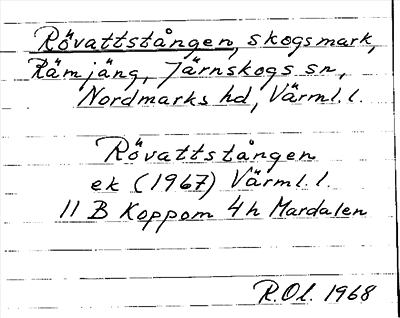 Rövattstången, skogsmark,
Rämjäng, Järnskogs sn,
Nordmarks hd, Värml.l.
Rövattstången
ek (1967) Värml.l.
11 B Koppom 4h Mardalen
R.Ol. 1968